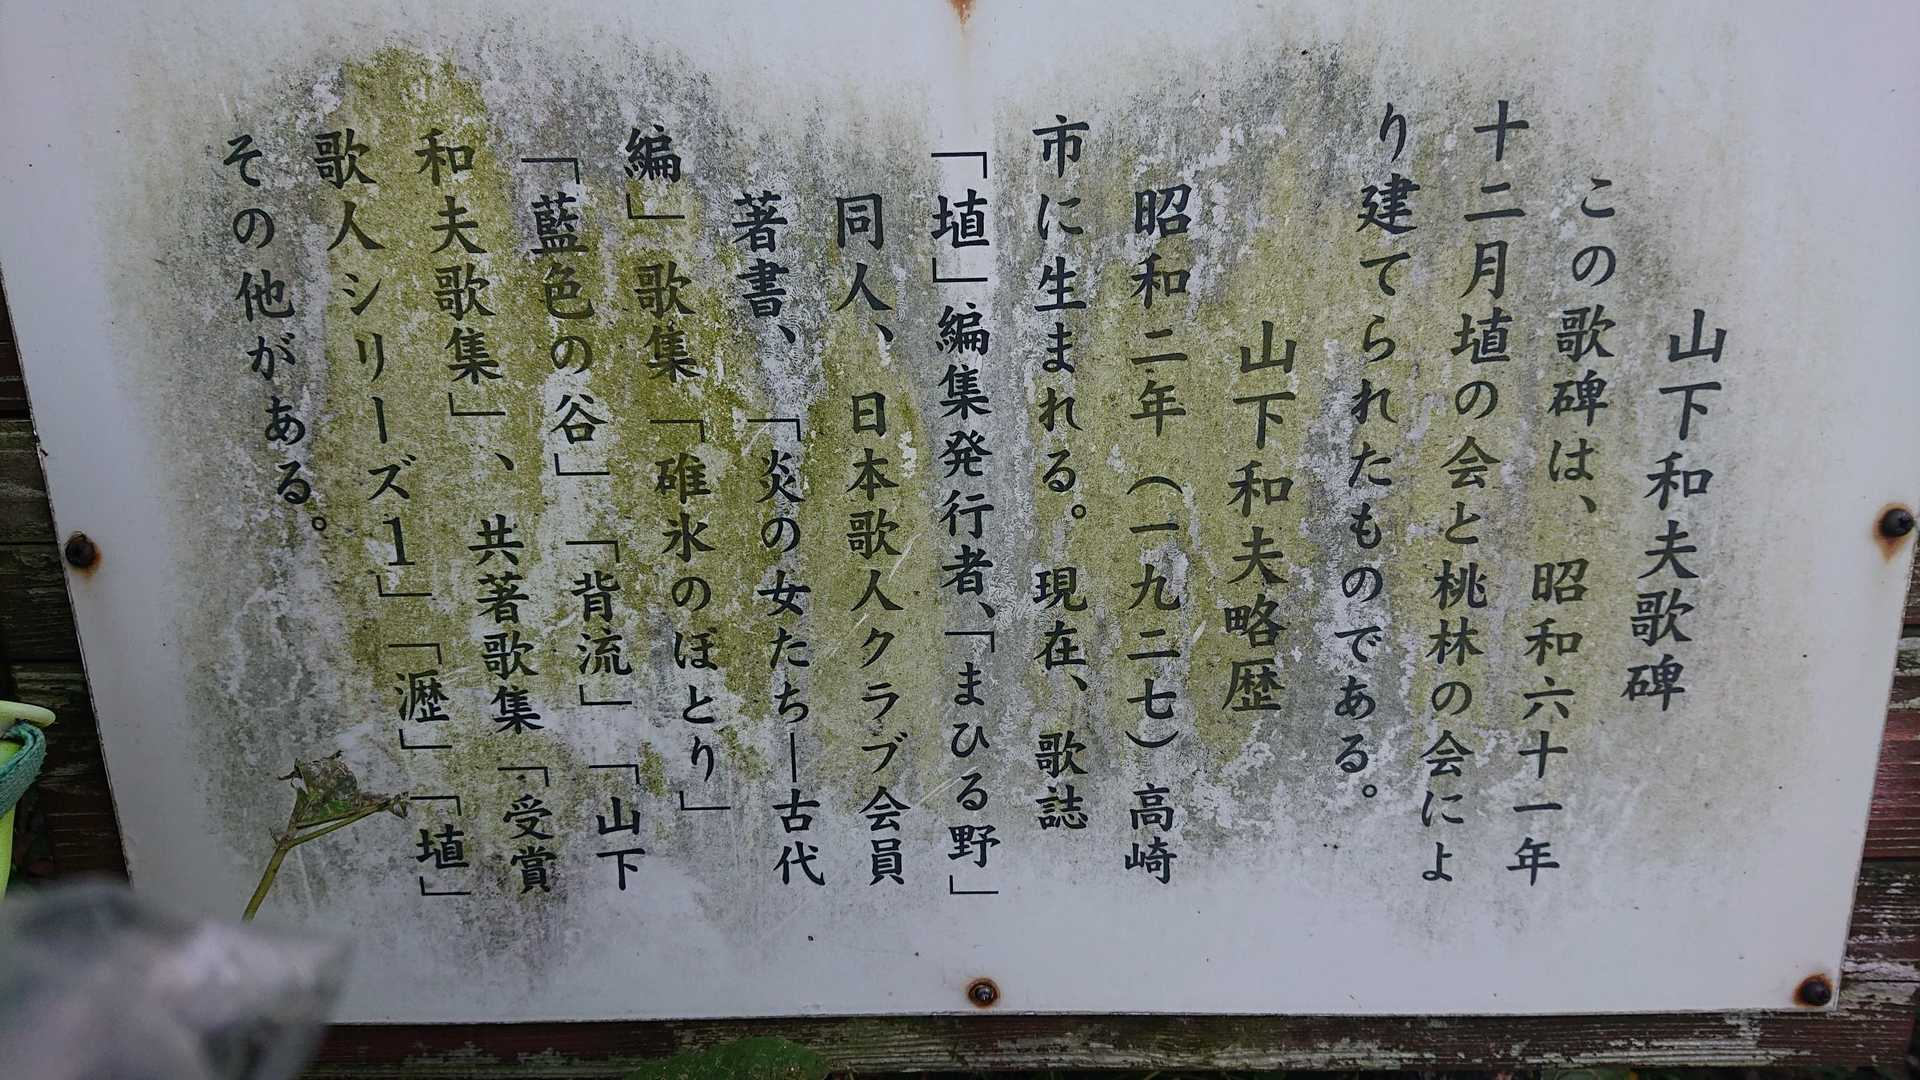 山下和夫歌碑
この歌碑は、昭和六十一年
十二月埴の会と桃林の会によ
り建てられたものである。
山下和夫略歴
昭和二年（一九二七）高崎
市に生まれる。現在、歌誌
「埴」編集発行者、「まひる野」
同人、日本歌人クラブ会員
著書、「炎の女たち―古代
編」歌集「碓氷のほとり」
「藍色の谷」「背流」「山下
和夫歌集」、共著歌集「受賞
歌人シリーズ1」「瀝」「埴」
その他がある。